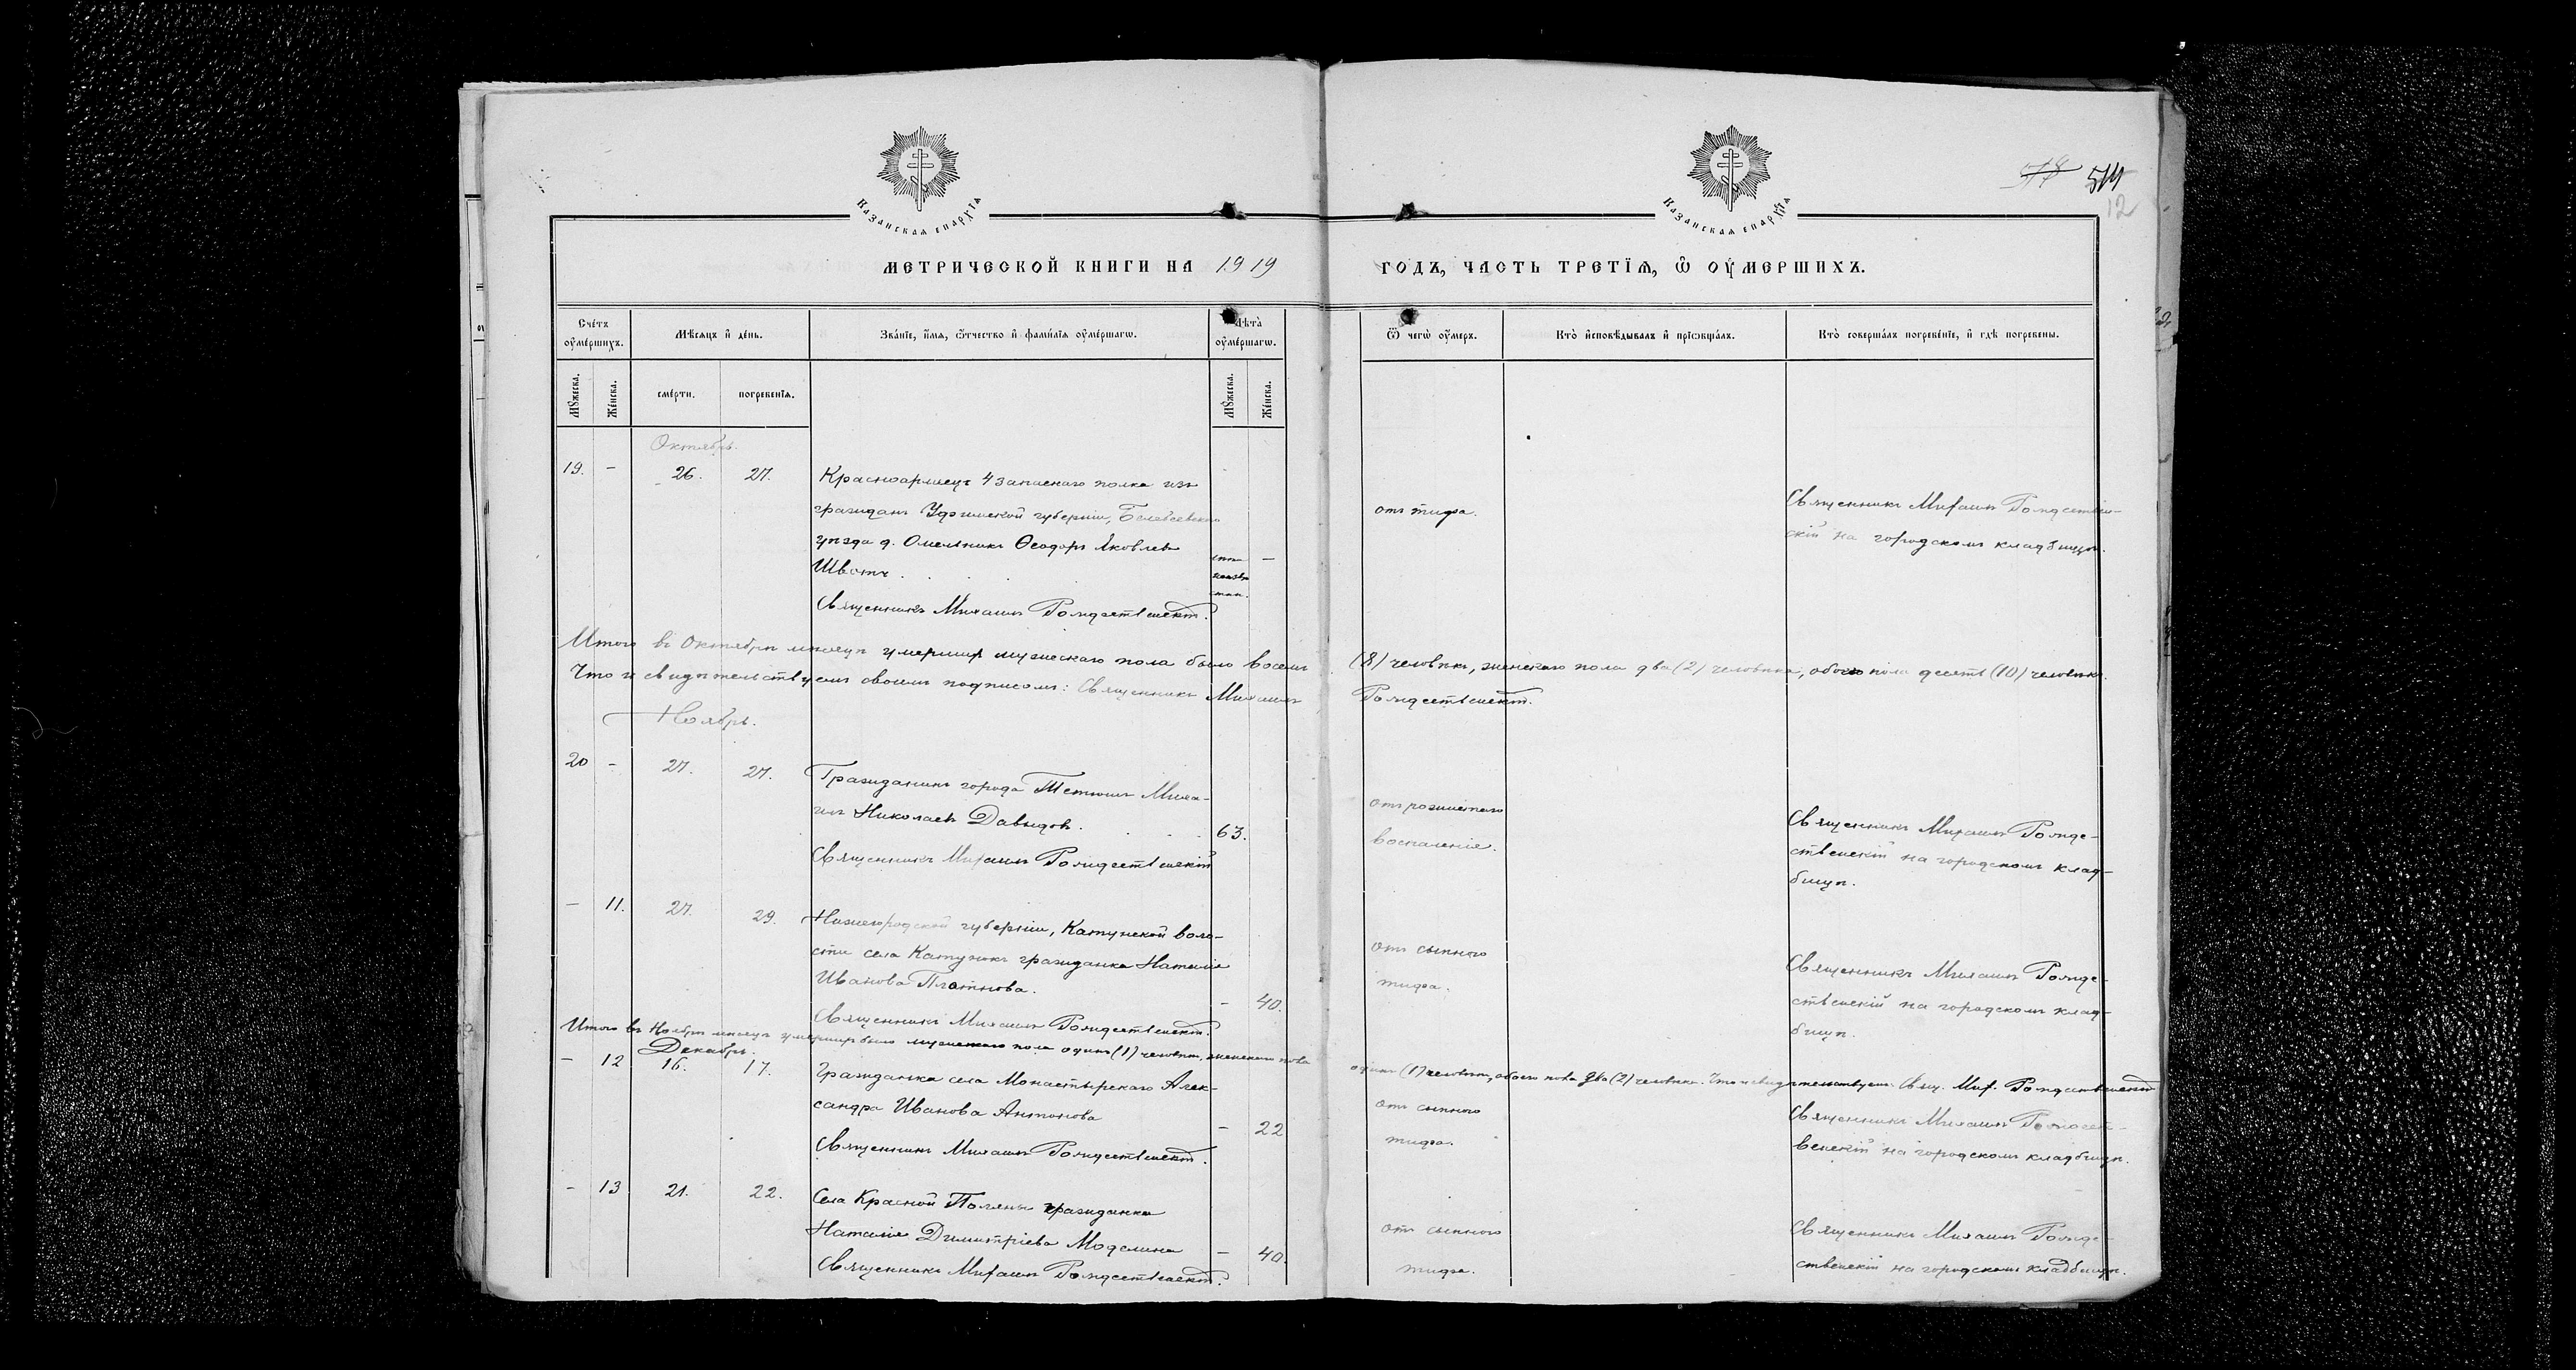 Казанская епархія
Казанская епархія
514
12
МЕТРИЧЕСКОЙ КНИГИ НА 1919
ГОДЪ, ЧАСТЬ ТРЕТІѦ, Ѡ ОУМЕРШИХЪ.
Сче́тъ оумершихъ.
Мѣсяцъ и день.
Званіе, имя, отчество и фамилія оумершаго.
Лѣта оумершаго.
Ѿ чего оумеръ.
Кто исповѣдывалъ и пріобщалъ.
Кто совершалъ погребеніе, и гдѣ погребены.
Мужеска.
Женска.
смерти.
погребенія.
Мужеска.
Женска.
Октябрь.
19. - 26. 27. Красноармеецъ 4 запаснаго полка изъ
гражданъ Уфимской губерніи, Белебеевскаго
уѣзда д. Омельникъ Ѳеодоръ Яковлевъ
Швотъ. -
Священникъ Михаилъ Рождественскій.
отъ тифа.
Священникъ Михаилъ Рождествен-
скій на городскомъ кладбищѣ.
Итого въ Октябрѣ мѣсяцѣ умершихъ мужескаго пола было восемь (8) человѣкъ, женскаго пола два (2) человѣка, обоего пола десять (10) человѣкъ.
Что и свидѣтельствуемъ своимъ подписомъ: Священникъ Михаилъ Рождественскій.
Ноябрь.
20 - 27. 27. Гражданинъ города Тетюшъ Миха-
илъ Николаевъ Давыдовъ. 63.
Священникъ Михаилъ Рождественскій
отъ рожистаго
воспаленія.
Священникъ Михаилъ Рожде-
ственскій на городскомъ клад-
бищѣ.
- 11. 27. 29. Нижегородской губерніи, Катунской воло-
сти села Катунокъ гражданка Наталія
Иванова Платнова. - 40.
Священникъ Михаилъ Рождественскій.
отъ сыпного
тифа.
Священникъ Михаилъ Рожде-
ственскій на городскомъ клад-
бищѣ.
Итого въ Ноябрѣ мѣсяцѣ умершихъ было мужескаго пола одинъ (1) человѣкъ, женскаго пола одинъ (1) человѣкъ, обоего пола два (2) человѣка. Что и свидѣтельствуемъ: Свящ. Мих. Рождественскій
Декабрь.
- 12 16. 17. Гражданка села Монастырскаго Алек-
сандра Иванова Антонова - 22
Священникъ Михаилъ Рождественскій.
отъ сыпного
тифа.
Священникъ Михаилъ Рождест-
венскій на городскомъ кладбищѣ.
- 13 21. 22. Села Красной Поляны гражданка
Наталія Димитріева Моделина - 40.
Священникъ Михаилъ Рождественскій.
отъ сыпного
тифа.
Священникъ Михаилъ Рожде-
ственскій на городскомъ кладбищѣ.